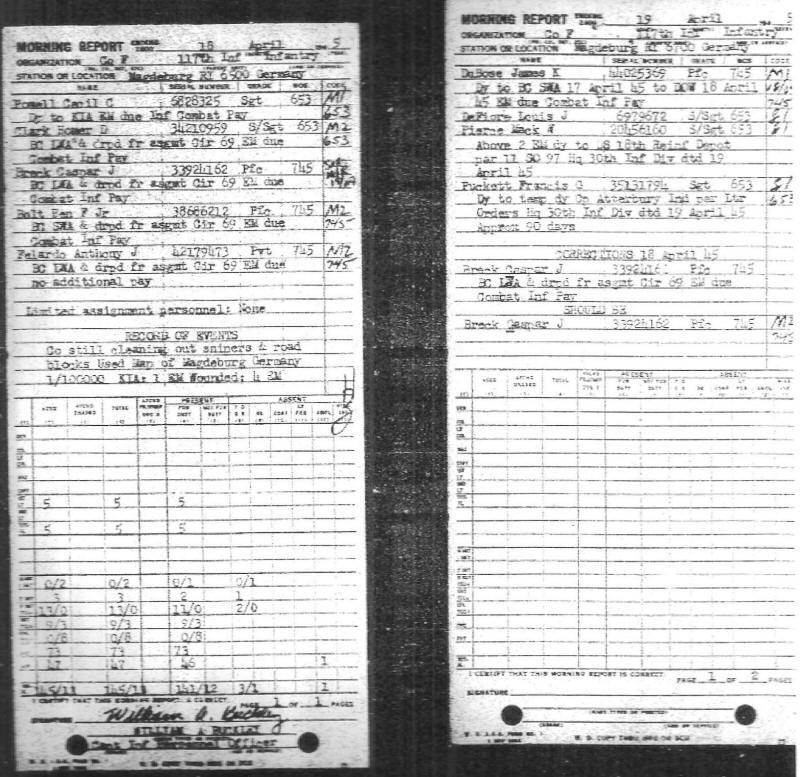 MORNING REPORT ENDING 2400 18 April 194 5
ORGANIZATION Co F 117th Inf Infantry
STATION OR LOCATION Magdeburg RI 6900 Germany
NAME SERIAL NUMBER GRADE MOS CODE
Powell Cecil C 6828325 Sgt 653 M1
Dy to KIA EM due Inf Combat Pay 653
Clark Homer D 34210959 S/Sgt 653 M2
BC LWA & drpd fr asgmt Cir 69 EM due 653
Combat Inf Pay
Breck Gaspar J 33924162 Pfc 745
BC LWA & drpd fr asgmt Cir 69 EM due
Combat Inf Pay
Bolt Ben F Jr 38686212 Pfc 745 M2
BC SWA & drpd fr asgmt Cir 69 EM due 745
Combat Inf Pay
Felardo Anthony J 42179473 Pvt 745 M2
BC LWA & drpd fr asgmt Cir 69 EM due 745
no additional pay
Limited assignment personnel: None
RECORD OF EVENTS
Co still cleaning out snipers & road
blocks Used Map of Magdeburg Germany
1/100000 KIA: 1 EM Wounded: 4 EM
PRESENT ABSENT
TOTAL
5 5 5
5 5 5
0/2 0/2 0/1 0/1
3 3 2 1
13/0 13/0 11/0 2/0
9/3 9/3 9/3
0/8 0/8 0/8
73 73 73
47 47 46 1
145/13 145/13 141/12 3/1 1
I CERTIFY THAT THIS MORNING REPORT IS CORRECT PAGE 1 OF 1 PAGES
SIGNATURE William A. Buckley
WILLIAM A BUCKLEY
Capt Inf Personnel Officer
MORNING REPORT ENDING 2400 19 April 194 5
ORGANIZATION Co F 117th Inf Infantry
STATION OR LOCATION Magdeburg RI 6700 Germany
NAME SERIAL NUMBER GRADE MOS CODE
DuBose James K 44025369 Pfc 745 M1
Dy to BC SWA 17 April 45 to DOW 18 April
45 EM due Combat Inf Pay 745
DeFiore Louis J 6979672 S/Sgt 653
Pierce Mack W 20456160 S/Sgt 653
Above 2 EM dy to US 18th Reinf Depot
par 11 SO 97 Hq 30th Inf Div dtd 19
April 45
Puckett Francis G 35131794 Sgt 653
Dy to temp dy Cp Atterbury Ind per Ltr 653
Orders Hq 30th Inf Div dtd 19 April 45
Approx 90 days
CORRECTIONS 18 April 45
Breck Gaspar J 3392416 Pfc 745
BC LWA & drpd fr asgmt Cir 69 EM due
Combat Inf Pay
SHOULD BE
Breck Gaspar J 33924162 Pfc 745 M2
745
TOTAL PRESENT ABSENT
I CERTIFY THAT THIS MORNING REPORT IS CORRECT
PAGE 1 OF 2 PAGES
SIGNATURE